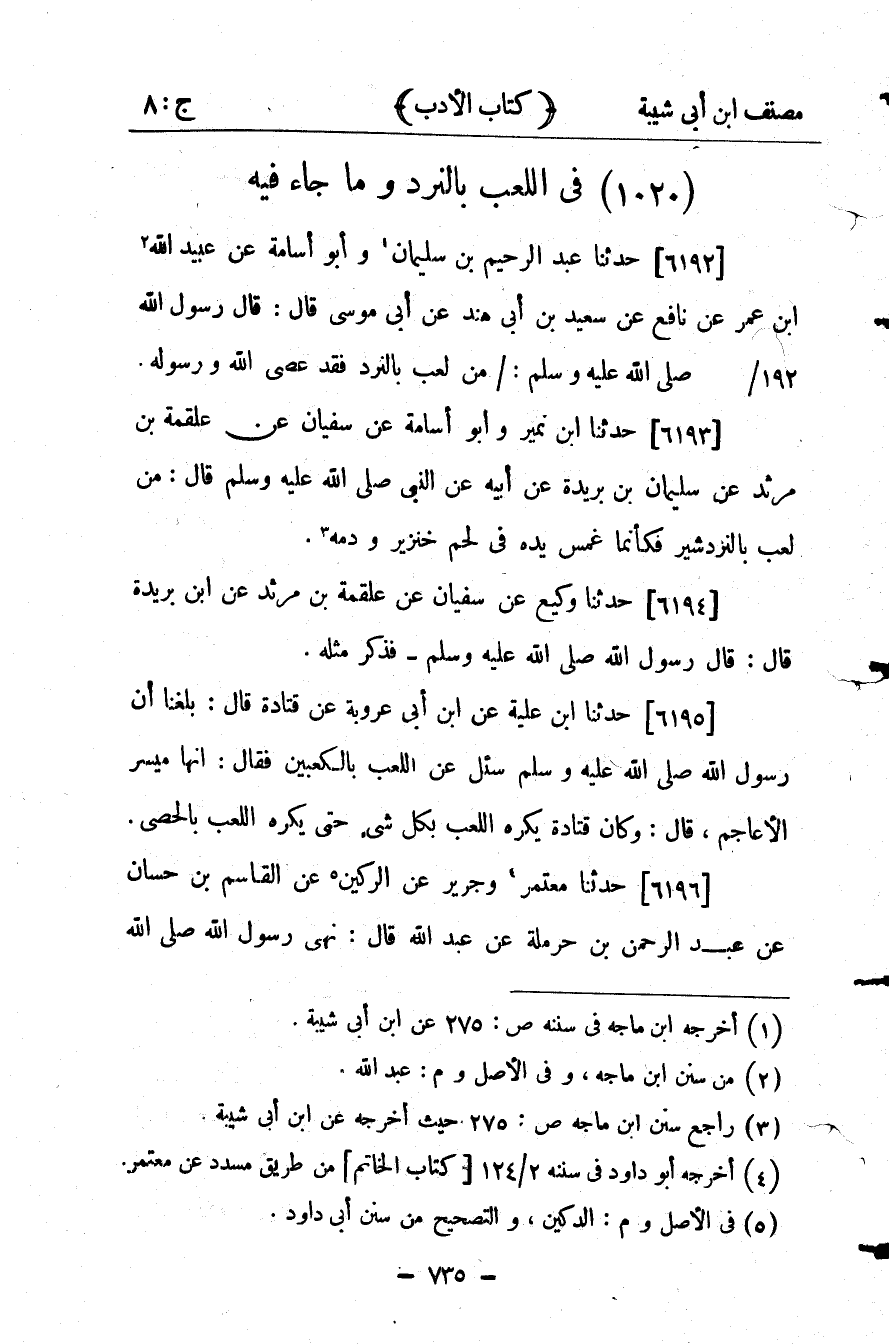 مصنف ابن أبي شيبة ﴿ كتاب الأدب ﴾ ج : ٨
(١٠٢٠) فى اللعب بالنرد و ما جاء فيه
[٦١٩٢] حدثنا عبد الرحيم بن سليمان١ و أبو أسامة عن عبيد الله٢
ابن عمر عن نافع عن سعيد بن أبى هند عن أبى موسى قال : قال رسول الله
١٩٢/ صلى الله عليه و سلم : / من لعب بالنرد فقد عصى الله و رسوله .
[٦١٩٣] حدثنا ابن نمير و أبو أسامة عن سفيان عن علقمة بن
مرثد عن سليمان بن بريدة عن أبيه عن النبى صلى الله عليه وسلم قال : من
لعب بالنردشير فكأنما غمس يده فى لحم خنزير و دمه٣ .
[٦١٩٤] حدثنا وكيع عن سفيان عن علقمة بن مرثد عن ابن بريدة
قال : قال رسول الله صلى الله عليه وسلم ـ فذكر مثله .
[٦١٩٥] حدثنا ابن علية عن ابن أبى عروبة عن قتادة قال : بلغنا أن
رسول الله صلى الله عليه و سلم سئل عن اللعب بالكعبين فقال : انها ميسر
الأعاجم ، قال : وكان قتادة يكره اللعب بكل شىء حتى يكره اللعب بالحصى .
[٦١٩٦] حدثنا معتمر٤ وجرير عن الركين٥ عن القاسم بن حسان
عن عبد الرحمن بن حرملة عن عبد الله قال : نهى رسول الله صلى الله
(١) أخرجه ابن ماجه فى سننه ص : ٢٧٥ عن ابن أبى شيبة .
(٢) من سنن ابن ماجه ، و فى الأصل و م : عبد الله .
(٣) راجع سنن ابن ماجه ص : ٢٧٥ حيث أخرجه عن ابن أبى شيبة .
(٤) أخرجه أبو داود فى سننه ١٢٤/٢ [ كتاب الخاتم ] من طريق مسدد عن معتمر.
(٥) فى الأصل و م : الدكين ، و التصحيح من سنن أبى داود .
– ٧٣٥ –